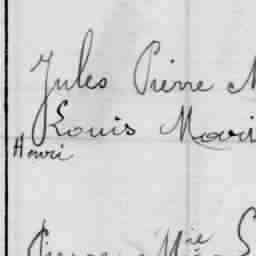 Jules Pierre M
Louis Mari
Henri
Pierre Mie